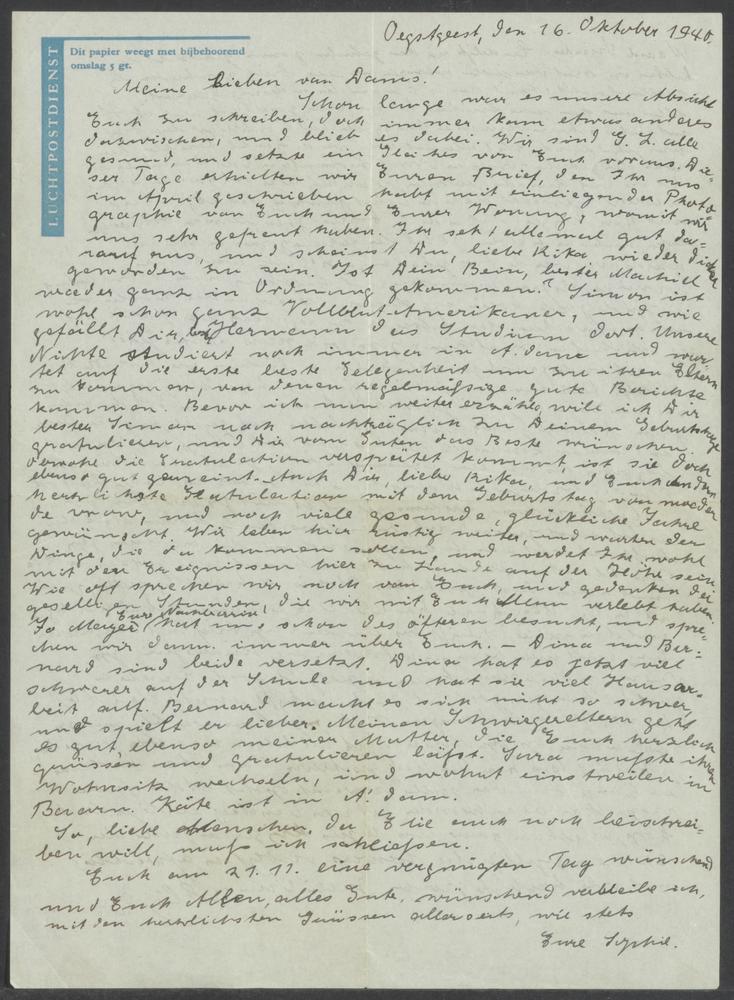 Oegstgeest, den 16. Oktober 1940.
LUCHTPOSTDIENST
Dit papier weegt met bijbehoorend
omslag 5 gr.
Meine Lieben van Dams!
Schon lange war es unsere Absicht
Euch zu schreiben, doch immer kam etwas anderes
dazwischen, und blieb es dabei. Wir sind G. L. alle
gesund, und setzte ein Gleiches von Euch voraus. Die=
ser Tage erhielten wir Euren Brief, den Ihr uns
im April geschrieben habt mit einliegender Photo
graphie von Euch und Eurer Wonung, womit wir
uns sehr gefreut haben. Ihr seht allemal gut da=
rauf aus, und scheinst Du, liebe Kika, wieder dicker
geworden zu sein. Ist Dein Bein, bester Machiel
wieder ganz in Ordnung gekommen? Simon ist
wohl schon ganz Vollblut-Amerikaner, und wie
gefällt Dir, Hermann das Studium dort. Unsere
Nichte studiert noch immer in A. dam und war=
tet auf die erste beste Gelegenheit um zu ihren Eltern
zu kommen, von denen regelmässige gute Berichte
kommen. Bevor ich nun weiter erzähle, will ich Dir
bester Simon noch nachträglich zu Deinem Geburtstage
gratulieren, und Dir vom Guten das Beste wünschen.
Obwohl die Gratulation verspätet kommt, ist sie doch
ebenso gut gemeint. Auch Dir, liebe Kika, und Euch andern
herzlichste Gratulation mit dem Geburtstag von moeder
de vrouw, und noch viele gesunde, glückliche Jahre
gewünscht. Wir leben hier rüstig weiter, und warten der
Dinge, die da kommen sollen, und werdet Ihr wohl
mit den Ereignissen hier zu Lande auf der Höhe sein
Wie oft sprechen wir noch von Euch, und gedenken der
geselligen Stunden, die wir mit Euch Allen verlebt haben.
Jo Meyer (Eure Nachbarin) hat uns schon des öfteren besucht, und spre=
chen wir dann immer über Euch. – Dina und Ber=
nard sind beide versetzt. Dina hat es jetzt viel
schwerer auf der Schule und hat sie viel Hausar=
beit auf. Bernard macht es sich nicht so schwer,
und spielt er lieber. Meinen Schwiegereltern geht
es gut, ebenso meiner Mutter, die Euch herzlich
grüssen und gratulieren lässt. Sara musste ihren
Wohnsitz wechseln, und wohnt einstweilen in
Baarn. Käte ist in A'dam.
So, liebe Menschen, da Elie auch noch beischrei=
ben will, muss ich schliessen.
Euch am 21.11. eine vergnügten Tag wünschend
und Euch Allen, alles Gute wünschend verbleibe ich,
mit den herzlichsten Grüssen allerseits, wie stets
Eure Sophie.